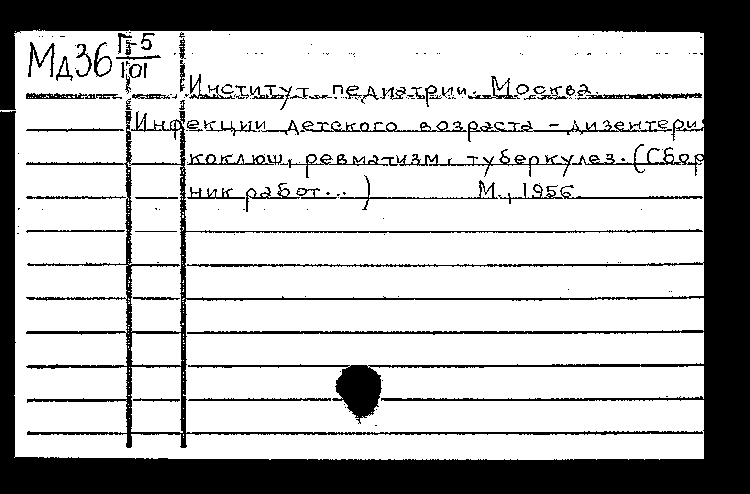 Мд36 Г-5/101
Институт педиатрии. Москва.
Инфекции детского возраста - дизентерия
коклюш, ревматизм, туберкулез. (Сбор
ник работ... ) М., 1956.